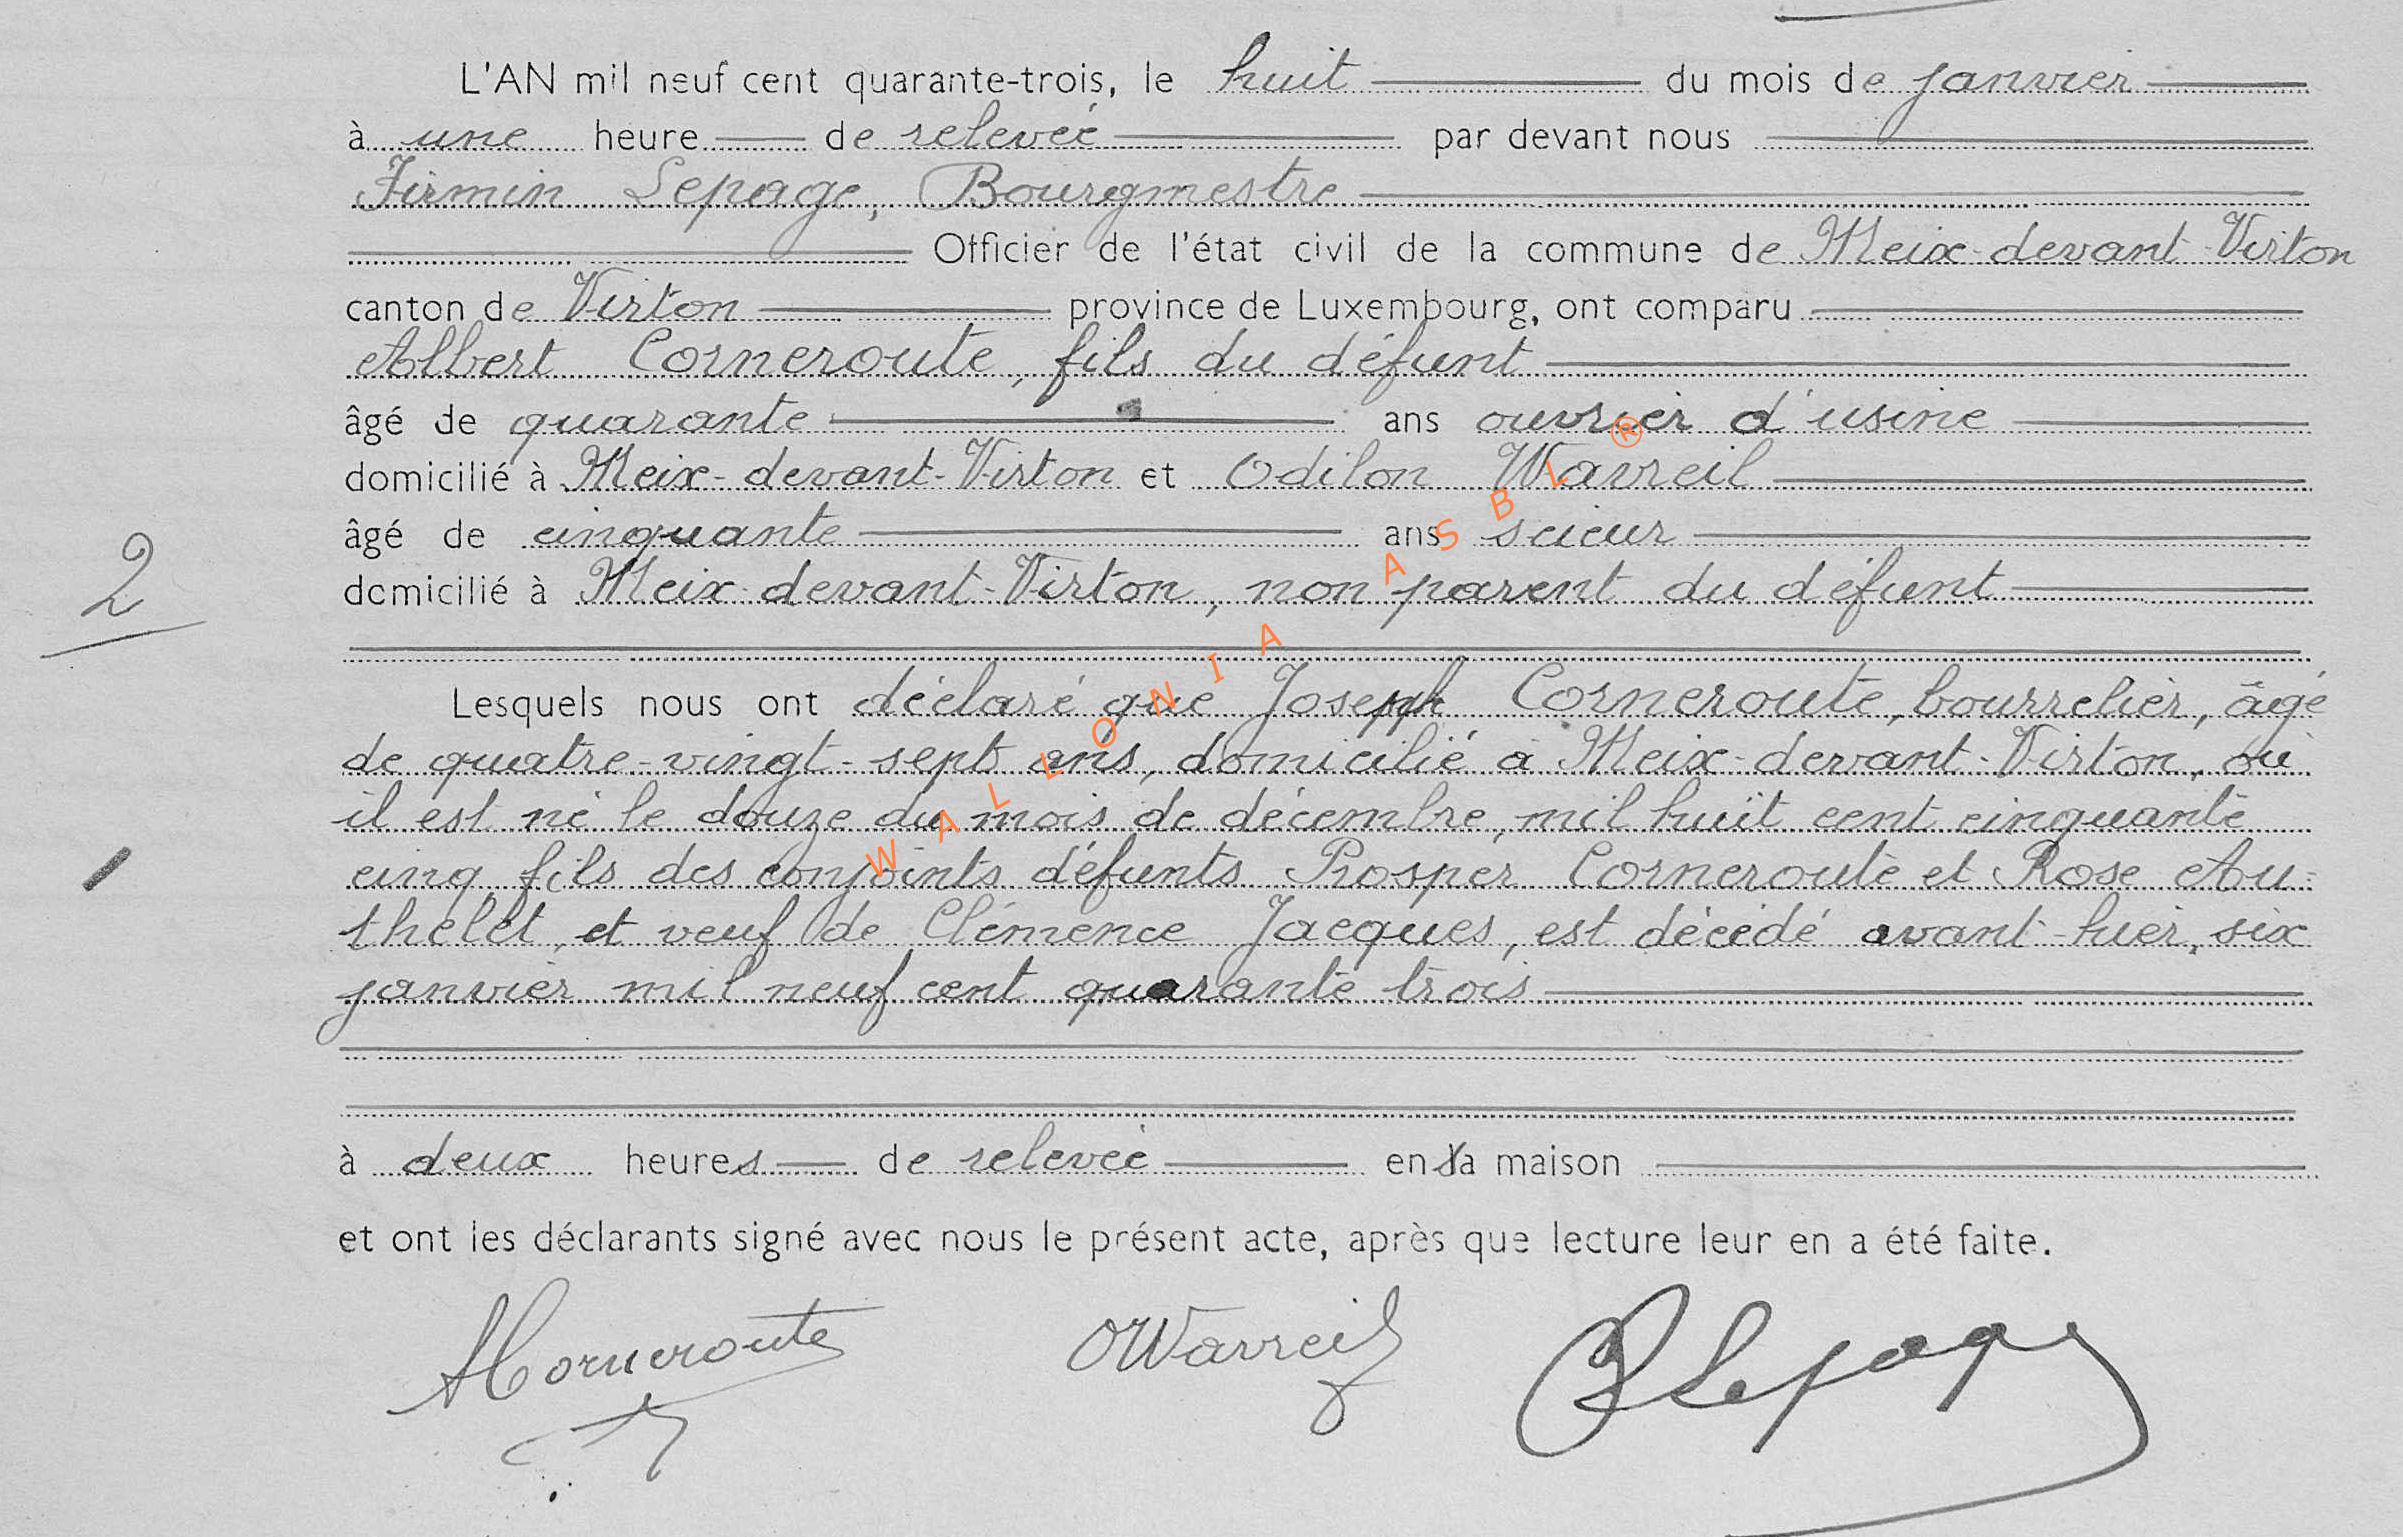 L'AN mil neuf cent quarante-trois, le huit du mois de janvier
à une heure de relevée par devant nous
Firmin Lepage, Bourgmestre
Officier de l'état civil de la commune de Meix-devant-Virton
canton de Virton province de Luxembourg, ont comparu
Albert Corneroute, fils du défunt
âgé de quarante ans ouvrier d'usine
domicilié à Meix-devant-Virton et Odilon Wavreil
âgé de cinquante ans scieur
2
domicilié à Meix-devant-Virton, non parent du défunt
Lesquels nous ont déclaré que Joseph Corneroute, bourrelier, âgé
de quatre-vingt-sept ans, domicilié à Meix-devant-Virton, où
il est né le douze du mois de décembre, mil huit cent cinquante
cinq, fils des conjoints défunts Prosper Corneroute et Rose Au=
thelet, et veuf de Clémence Jacques, est décédé avant-hier, six
janvier mil neuf cent quarante trois
à deux heures de relevée en sa maison
et ont les déclarants signé avec nous le présent acte, après que lecture leur en a été faite.
ACorneroute OWavreil Lepage
WALLONIA ASBL ®